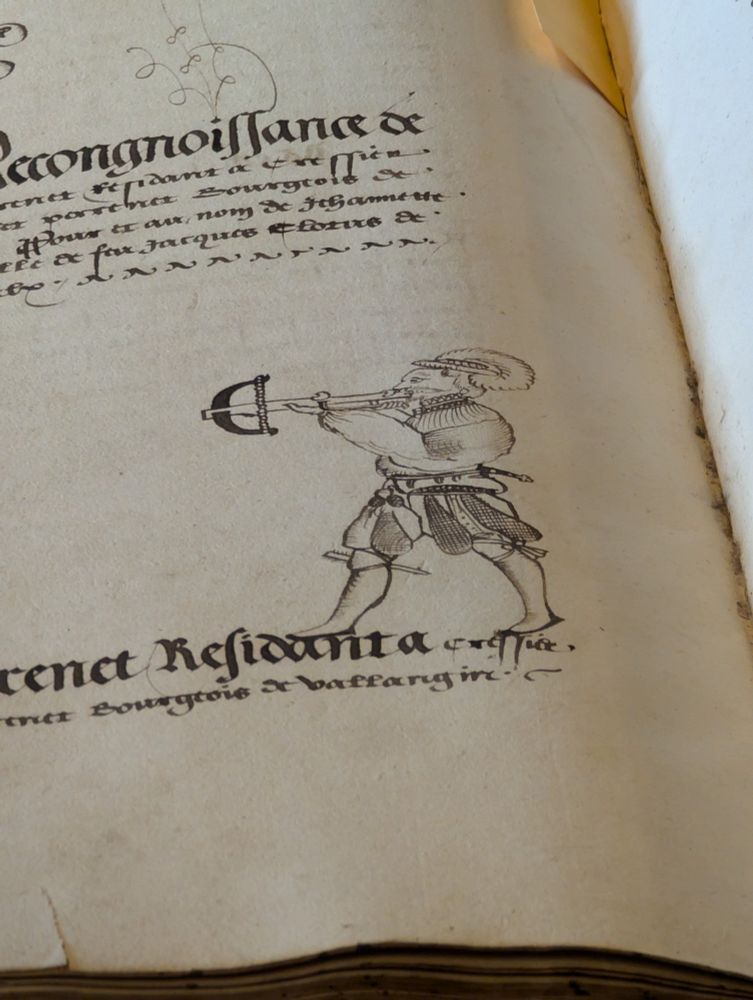 Recongnoissance de
Residant a Cressier
et perrenet Bourgeois de
Pour et au nom de Jehannette
de feu Jacques Clotus de
renet Residant a Cressier.
Bourgeois de Vallangin.